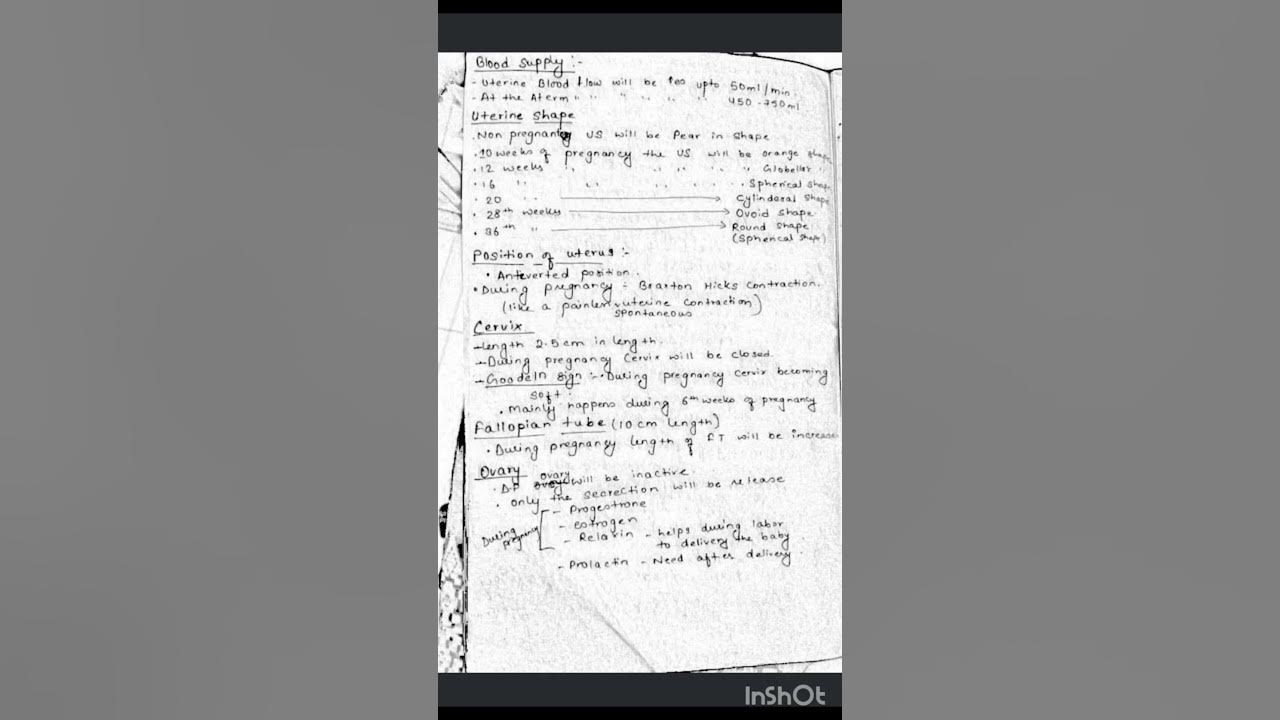 Blood supply :-
- Uterine Blood flow will be ↑es upto 50ml/min.
- At the Aterm " " " " " " 450-750ml
Uterine shape
. Non pregnancy US will be Pear in shape
. 10 weeks of pregnancy the US will be orange shape
. 12 weeks " " " " " Globellar "
. 16 " " " " " . Spherical shape
. 20 " " → Cylinderal shape
. 28th weeks → Ovoid shape
. 36th " → Round shape
(Spherical shape)
Position of uterus :-
• Anteverted position.
• During pregnancy - Braxton Hicks contraction.
(like a painless uterine contraction)
spontaneous
Cervix
- length 2.5 cm in length.
- During pregnancy cervix will be closed.
- Goodeln sign :- • During pregnancy cervix becoming
soft.
. Mainly happens during 6th weeks of pregnancy
Fallopian tube (10 cm length)
• During pregnancy length of FT will be increase
Ovary
. D.P ovary will be inactive.
. only the secrection will be release
During pregnancy
- Progestrone
- estrogen
- Relaxin - helps during labor
to delivery the baby
- Prolactin - Need after delivery.
InShOt